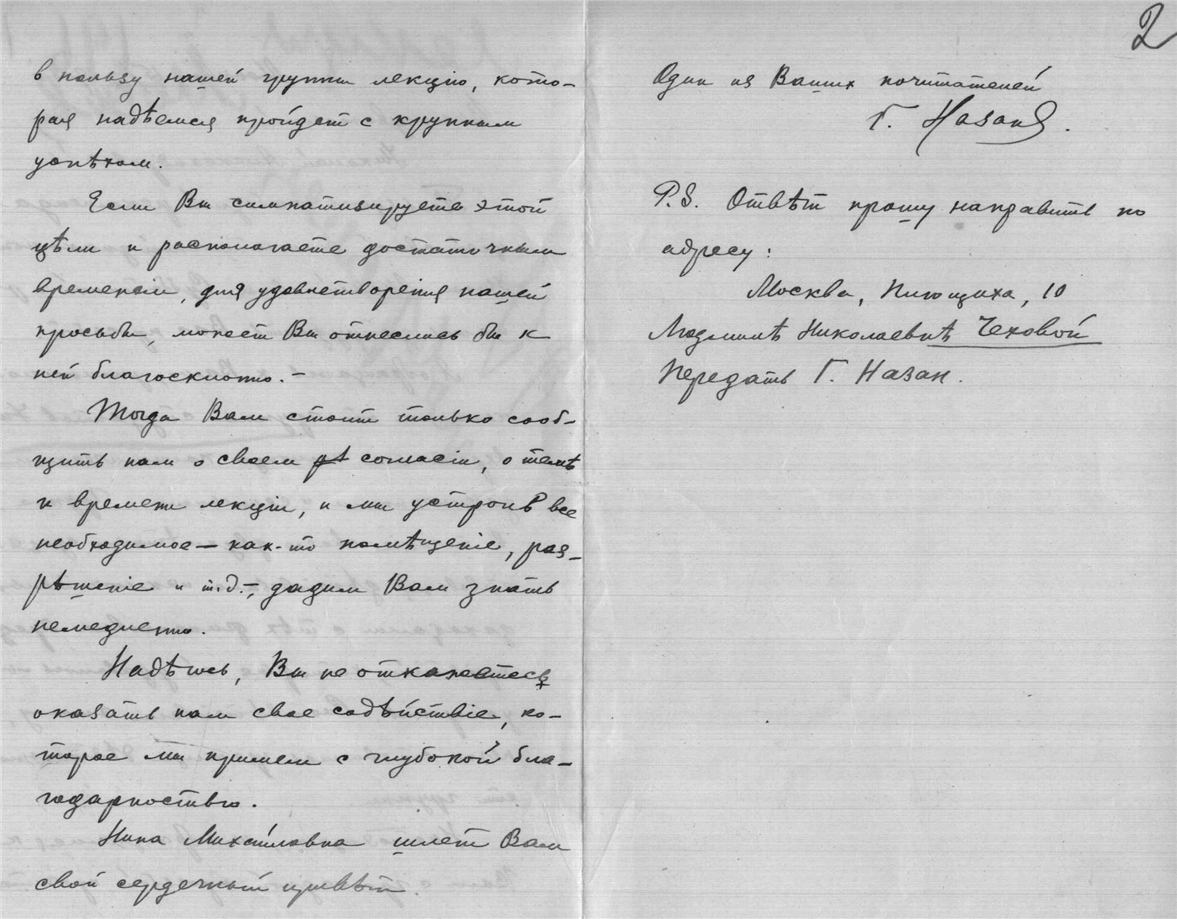 2
в пользу нашей группы лекцію, кото-
рая надѣемся пройдет с крупным
успѣхом.
Если Вы симпатизируете этой
цѣли и располагаете достаточным
временем, для удовлетворения нашей
просьбы, может Вы отнеслись бы к
ней благосклонно.-
Тогда Вам стоит только сооб-
щить нам о своем согласіи, о темѣ
и времени лекціи, и мы устроив все
необходимое — как-то помѣщеніе, раз-
рѣшеніе и т.д.-, дадим Вам знать
немедленно.
Надѣюсь, Вы не откажетесь
оказать нам свое содѣйствіе, ко-
торое мы примем с глубокой бла-
годарностью.
Нина Михайловна шлет Вам
свой сердечный привѣт.
Один из Ваших почитателей
Г. Назан.
P.S. Отвѣт прошу направить по
адресу:
Москва, Плющиха, 10
Людмилѣ Николаевнѣ Чеховой
Передать Г. Назан.